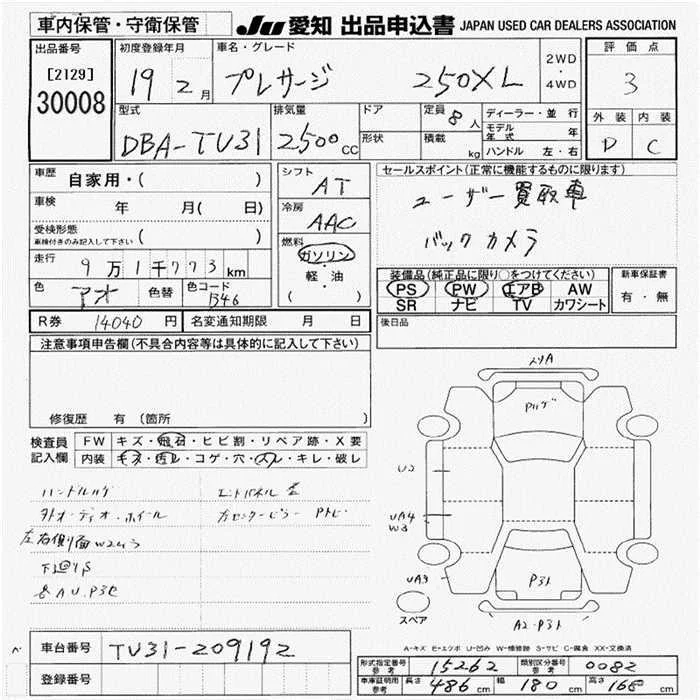 車内保管・守衛保管
JU 愛知 出品申込書 JAPAN USED CAR DEALERS ASSOCIATION
出品番号
[2129]
30008
初度登録年月
19 2月
車名・グレード
プレサージ 250XL
2WD
・
4WD
評価点
3
外装 内装
D C
型式
DBA-TU31
排気量
2500cc
ドア
形状
定員 8人
積載 kg
ディーラー・並行
モデル年式 年
ハンドル 左・右
車歴 自家用・( )
車検 年 月( 日)
受検形態
車検付きのみ記入して下さい ( )
走行 9万1千773km
色 アオ 色替 色コード B46
シフト AT
冷房 AAC
燃料
ガソリン
・
軽・油
( )
セールスポイント(正常に機能するものに限ります)
ユーザー買取車
バックカメラ
装備品(純正品に限り○をつけてください)
PS PW エアB AW
SR ナビ TV カワシート
新車保証書
有・無
R券 14040円 名変通知期限 月 日
後日品
注意事項申告欄(不具合内容等は具体的に記入して下さい)
修復歴 有(箇所 )
検査員
記入欄
FW キズ・飛石・ヒビ割・リペア跡・X要
内装 キズ・汚レ・コゲ・穴・スレ・キレ・破レ
ハンドルハゲ
オーディオ・ホイール
左右側面W2ムラ
下廻りS
メリA
Pハゲ
U2
UA4
W3
UA3
P31
A2・P31
スペア
A-キズ E-エクボ U-凹み W-補修跡 S-サビ C-腐食 XX-交換済
車台番号 TU31-209192
登録番号
形式指定番号 参考 15262 類別区分番号 参考 0082
車庫証明用 参考 長さ 486cm 幅 180cm 高さ 168cm